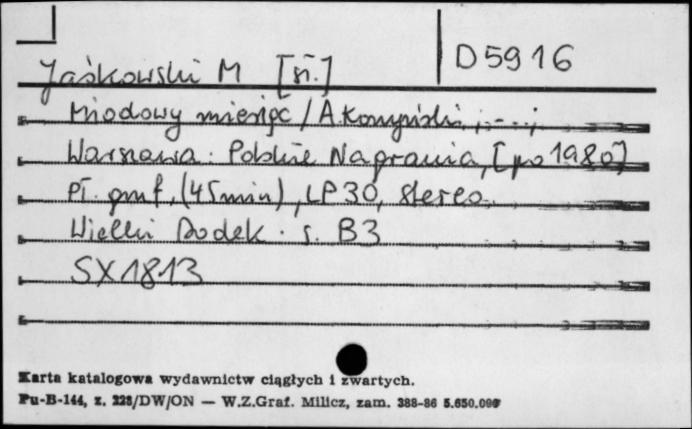 D5916
Jaśkowski M [sł.]
Miodowy miesiąc / A. Korzyński, ; - - ;
Warszawa: Polskie Nagrania, [po 1980]
Pł. gmf. (45 min), LP30, stereo.
Wielki Dodek. s. B3
SX1813
Karta katalogowa wydawnictw ciągłych i zwartych.
Pu-B-144, z. 228/DW/ON — W.Z.Graf. Milicz, zam. 388-86 5.650.000